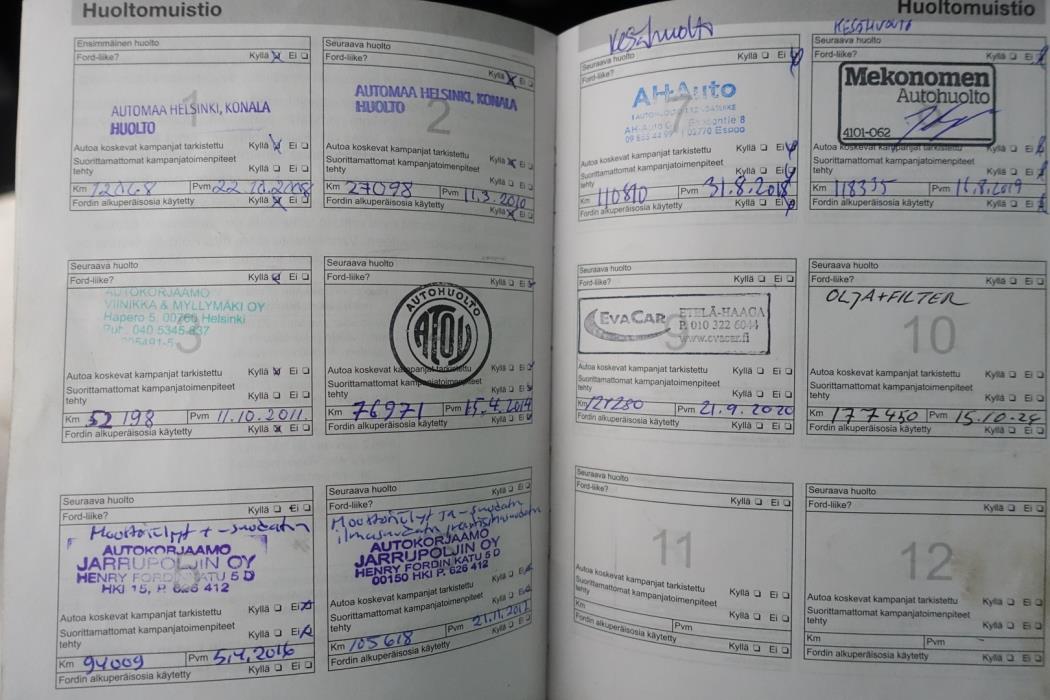 Huoltomuistio
Ensimmäinen huolto
Ford-liike? Kyllä Ei
1
AUTOMAA HELSINKI, KONALA
HUOLTO
Autoa koskevat kampanjat tarkistettu Kyllä Ei
Suorittamattomat kampanjatoimenpiteet
tehty Kyllä Ei
Km Pvm 22.10.2008
Fordin alkuperäisosia käytetty Kyllä Ei
Seuraava huolto
Ford-liike? Kyllä Ei
2
AUTOMAA HELSINKI, KONALA
HUOLTO
Autoa koskevat kampanjat tarkistettu
Suorittamattomat kampanjatoimenpiteet Kyllä Ei
tehty Kyllä Ei
Km 27098 Pvm 11.3.2010
Fordin alkuperäisosia käytetty Kyllä Ei
Seuraava huolto
Ford-liike? Kyllä Ei
3
AUTOKORJAAMO
VIINIKKA & MYLLYMÄKI OY
Hapero 5, 00760 Helsinki
Puh. 040 5345-837
Autoa koskevat kampanjat tarkistettu Kyllä Ei
Suorittamattomat kampanjatoimenpiteet
tehty Kyllä Ei
Km 52 198 Pvm 11.10.2011.
Fordin alkuperäisosia käytetty Kyllä Ei
Seuraava huolto
Ford-liike? Kyllä Ei
AUTOHUOLTO
Autoa koskevat kampanjat tarkistettu Kyllä Ei
Suorittamattomat kampanjatoimenpiteet
tehty Kyllä Ei
Km 76971 Pvm 15.4.2014
Fordin alkuperäisosia käytetty Kyllä Ei
Seuraava huolto
Ford-liike? Kyllä Ei
Moottoriöljyt + -suodatin
AUTOKORJAAMO
JARRUPOLJIN OY
HENRY FORDIN KATU 5 D
HKI 15, P. 626 412
Autoa koskevat kampanjat tarkistettu Kyllä Ei
Suorittamattomat kampanjatoimenpiteet
tehty Kyllä Ei
Km 94009 Pvm 5.4.2016
Fordin alkuperäisosia käytetty Kyllä Ei
Seuraava huolto
Ford-liike? Kyllä Ei
Moottoriöljyt ja -suodatin
ilmansuodatin
AUTOKORJAAMO
JARRUPOLJIN OY
HENRY FORDIN KATU 5 D
00150 HKI P. 626 412
Autoa koskevat kampanjat tarkistettu Kyllä Ei
Suorittamattomat kampanjatoimenpiteet
tehty Kyllä Ei
Km 105618 Pvm
Fordin alkuperäisosia käytetty Kyllä Ei
Huoltomuistio
Kesähuolto
Seuraava huolto
Ford-liike? Kyllä Ei
7
AH-Auto
02770 Espoo
Autoa koskevat kampanjat tarkistettu Kyllä Ei
Suorittamattomat kampanjatoimenpiteet
tehty Kyllä Ei
Km 110810 Pvm 31.8.2018
Fordin alkuperäisosia käytetty Kyllä Ei
KESÄHUOLTO
Seuraava huolto
Ford-liike? Kyllä Ei
Mekonomen
Autohuolto
4101-062
Autoa koskevat kampanjat tarkistettu Kyllä Ei
Suorittamattomat kampanjatoimenpiteet
tehty Kyllä Ei
Km 118335 Pvm 11.8.2019
Fordin alkuperäisosia käytetty Kyllä Ei
Seuraava huolto
Ford-liike? Kyllä Ei
9
EVACAR ETELÄ-HAAGA
P. 010 322 6044
www.evacar.fi
Autoa koskevat kampanjat tarkistettu Kyllä Ei
Suorittamattomat kampanjatoimenpiteet
tehty Kyllä Ei
Km 121280 Pvm 21.9.2020
Fordin alkuperäisosia käytetty Kyllä Ei
Seuraava huolto
Ford-liike? Kyllä Ei
10
Autoa koskevat kampanjat tarkistettu Kyllä Ei
Suorittamattomat kampanjatoimenpiteet
tehty Kyllä Ei
Km 177450 Pvm 15.10.24
Fordin alkuperäisosia käytetty Kyllä Ei
Seuraava huolto
Ford-liike? Kyllä Ei
11
Autoa koskevat kampanjat tarkistettu Kyllä Ei
Suorittamattomat kampanjatoimenpiteet
tehty Kyllä Ei
Km Pvm
Fordin alkuperäisosia käytetty Kyllä Ei
Seuraava huolto
Ford-liike? Kyllä Ei
12
Autoa koskevat kampanjat tarkistettu Kyllä Ei
Suorittamattomat kampanjatoimenpiteet
tehty Kyllä Ei
Km Pvm
Fordin alkuperäisosia käytetty Kyllä Ei